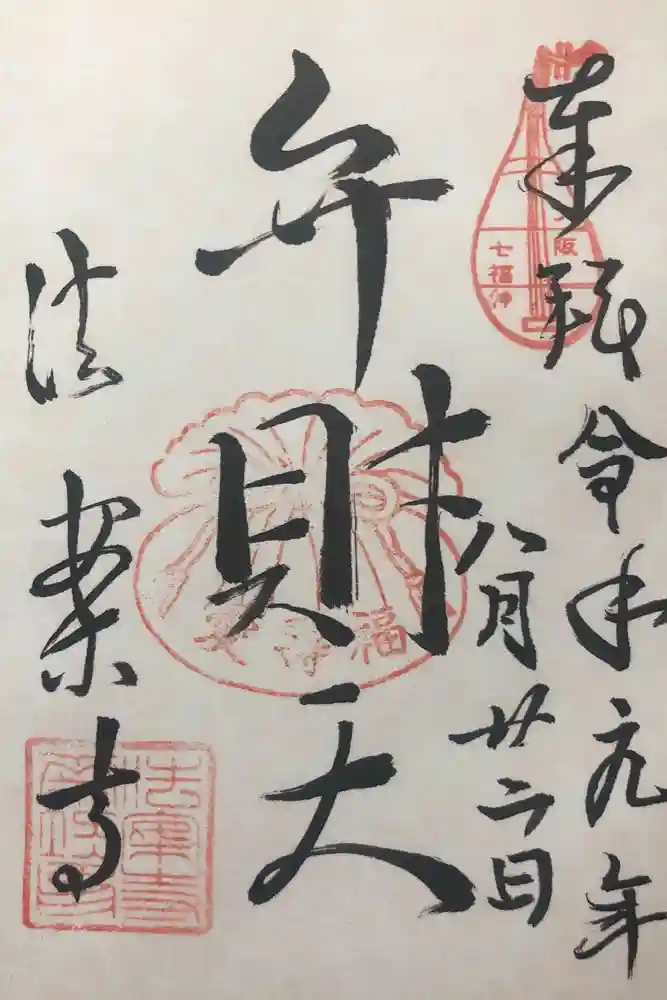 奉拝
令和元年
八月廿二日
弁財天
法案寺
大阪
七福神
福
法案寺